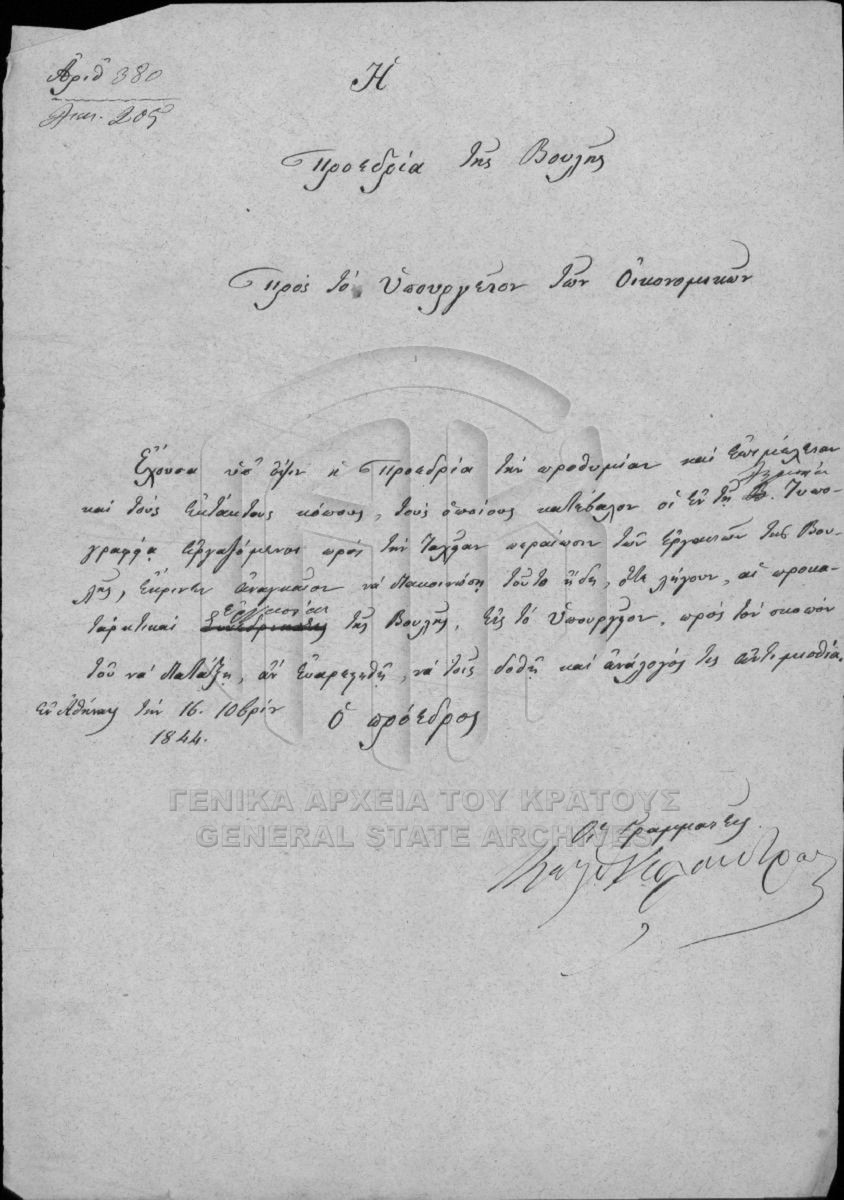 Ἀριθ 380
Διεκ. 205
Ἡ
Προεδρία τῆς Βουλῆς
Πρὸς τὸ Ὑπουργεῖον τῶν Οἰκονομικῶν
Ἔχουσα ὑπ' ὄψιν ἡ Προεδρία τὴν προθυμίαν καὶ ἐπιμέλειαν
καὶ τοὺς ἐκτάκτους κόπους, τοὺς ὁποίους κατέβαλον οἱ ἐν τῇ Β. Τυπο-
γραφίᾳ ἐργαζόμενοι πρὸς τὴν ταχεῖαν περαίωσιν τῶν ἐργασιῶν τῆς Βου-
λῆς, ἔκρινεν ἀναγκαῖον νὰ διακοινώσῃ τοῦτο ἤδη, ὅτε λήγουν, αἱ προκα-
ταρκτικαὶ ἐργασίαι τῆς Βουλῆς, εἰς τὸ Ὑπουργεῖον, πρὸς τὸν σκοπὸν
τοῦ νὰ διατάξῃ, ἂν εὐαρεστηθῇ, νὰ τοῖς δοθῇ καὶ ἀνάλογός τις ἀντιμισθία.
Ἐν Ἀθήναις τὴν 16. 10βρίου
1844.
Ὁ πρόεδρος
Οἱ Γραμματεῖς
ΓΕΝΙΚΑ ΑΡΧΕΙΑ ΤΟΥ ΚΡΑΤΟΥΣ
GENERAL STATE ARCHIVES